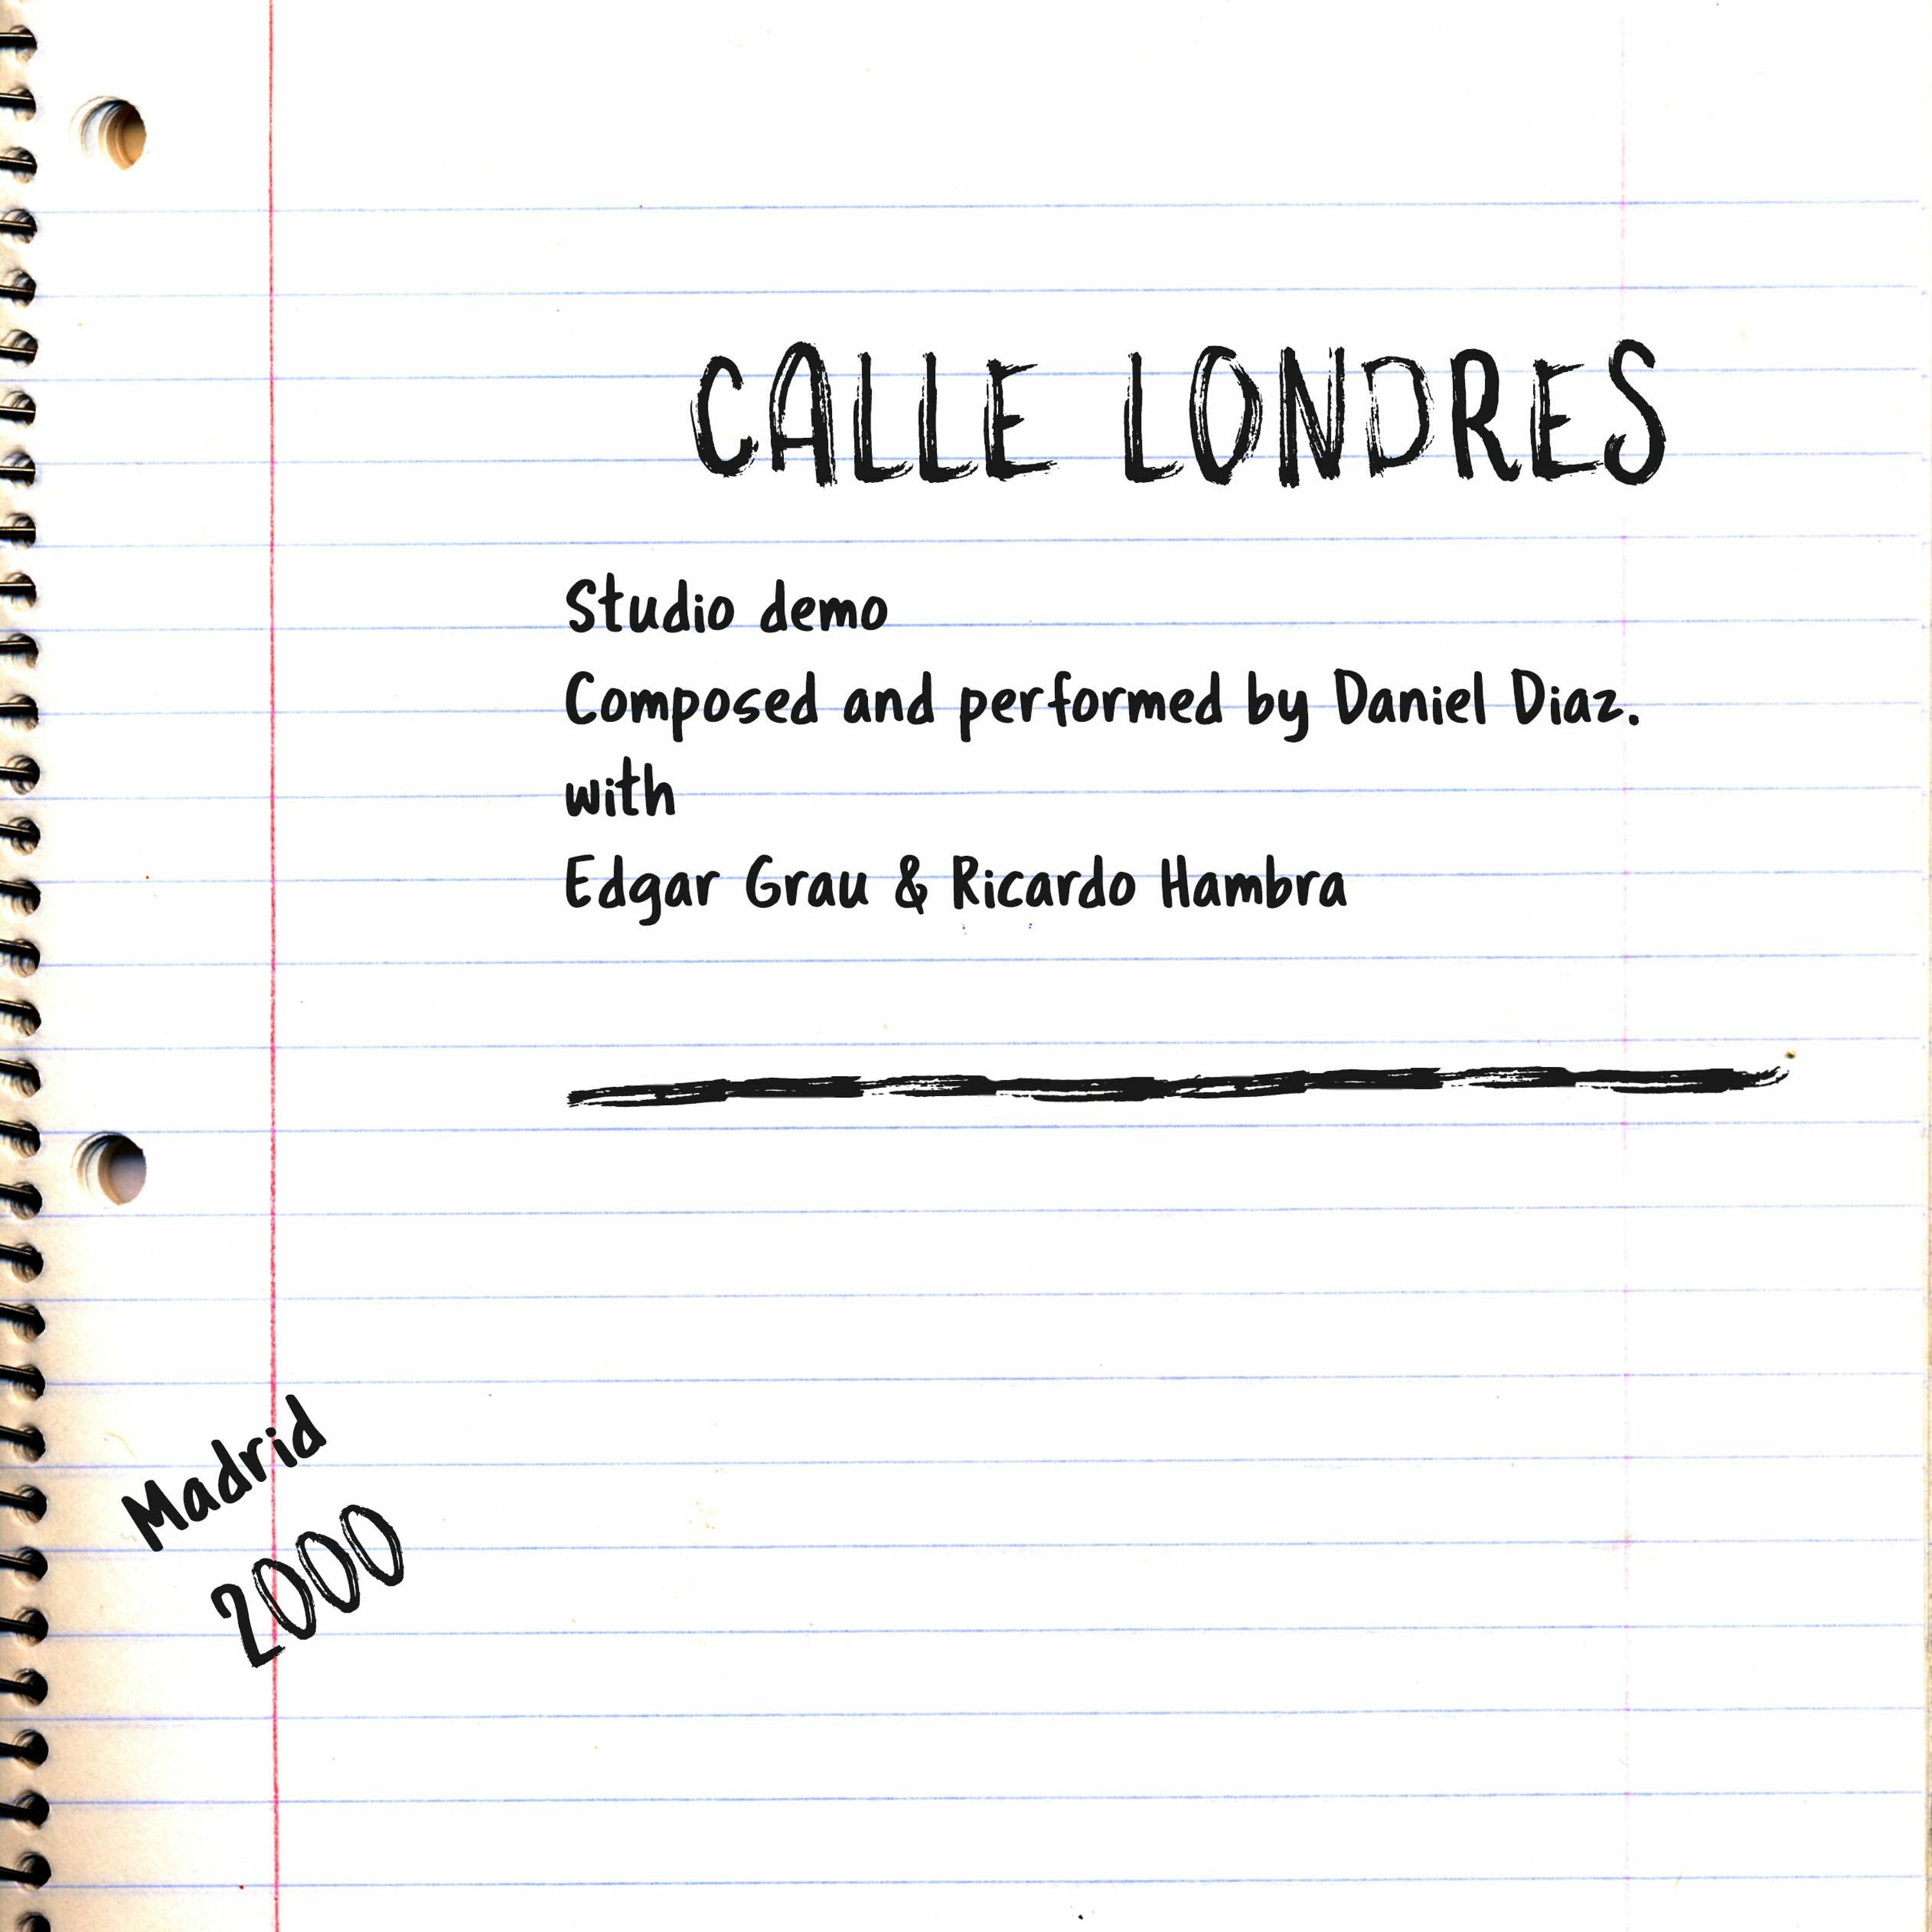 CALLE LONDRES
Studio demo
Composed and performed by Daniel Diaz.
with
Edgar Grau & Ricardo Hambra
Madrid
2000